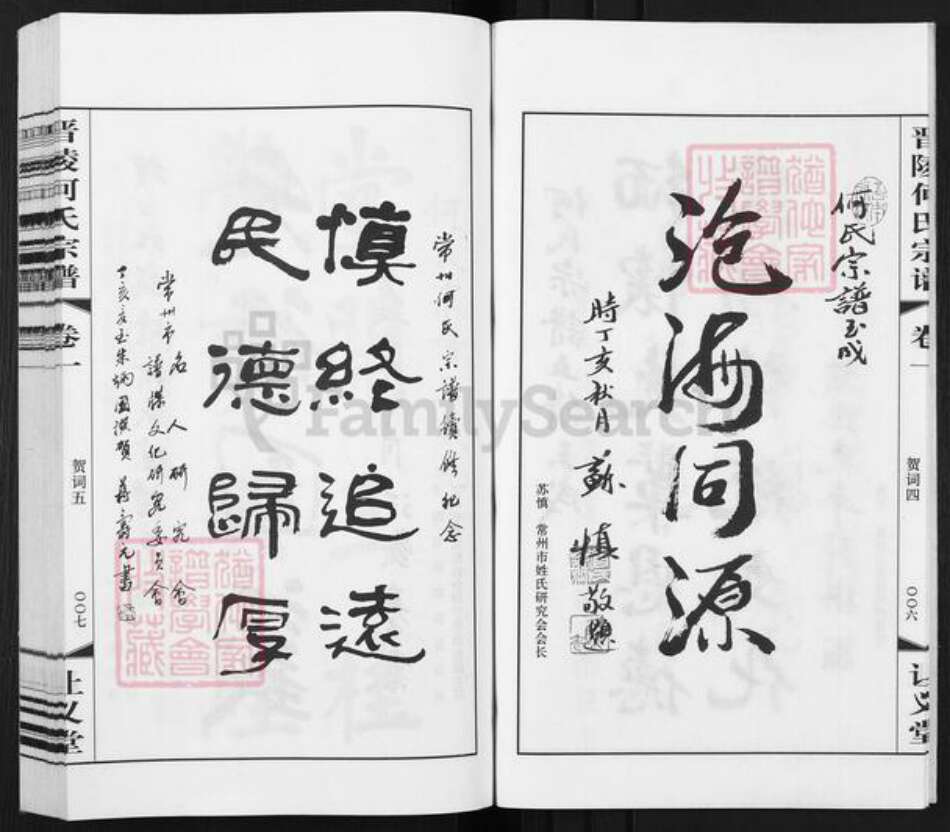 晋陵何氏宗谱
卷一
贺词四
〇〇六
让义堂
何氏宗譜玉成
沧海同源
時丁亥秋月
蘇慎敬題
苏慎 常州市姓氏研究会会长
常州何氏宗譜續修纪念
慎終追遠
民德歸厚
常州市名人研究會
譜牒文化研究委員會
丁亥
晋陵何氏宗谱
卷一
贺词五
〇〇七
让义堂
FamilySearch